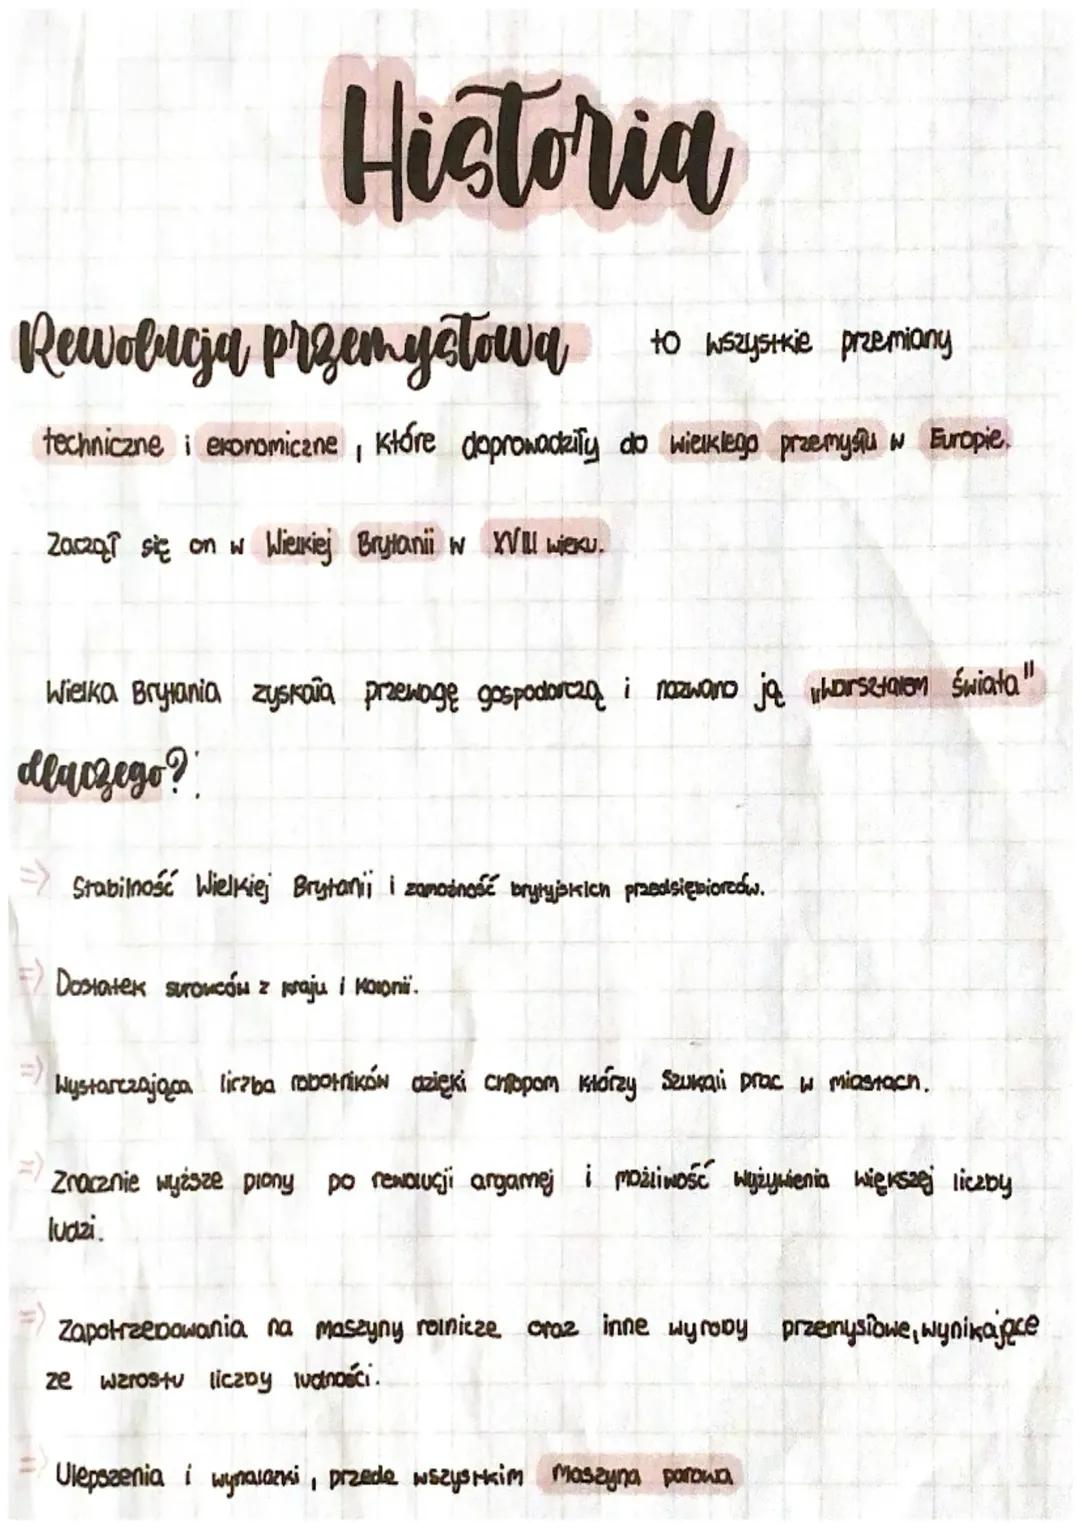 Historia
Rewolucja przemysłowa to wszystkie przemiany
techniczne i ekonomiczne, które doprowadziły do wielkiego przemysłu w Europie.
Zaczął się on w Wielkiej Brytanii w XVIII wieku.
Wielka Brytania zyskała przewagę gospodarczą i nazwano ją „warsztatem świata"
dlaczego?:
=> Stabilność Wielkiej Brytanii i zamożność brytyjskich przedsiębiorców.
=> Dostatek surowców z kraju i kolonii.
=> Wystarczająca liczba robotników dzięki chłopom którzy szukali prac w miastach.
=> Znacznie wyższe plony po rewolucji argarnej i możliwość wyżywienia większej liczby
ludzi.
=> Zapotrzebowania na maszyny rolnicze oraz inne wyroby przemysłowe, wynikające
ze wzrostu liczby ludności.
=> Ulepszenia i wynalazki, przede wszystkim maszyna parowa